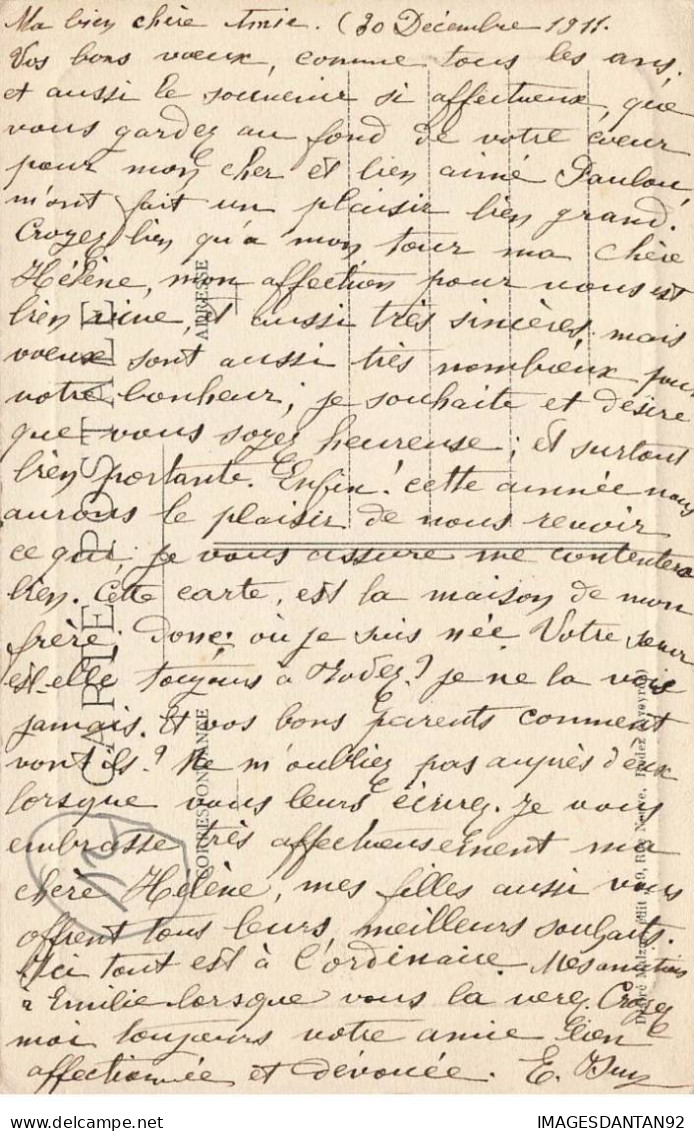 Ma bien chère Amie. (30 Décembre 1911.
Vos bons vœux, comme tous les ans,
et aussi le souvenir si affectueux, que
vous gardez au fond de votre cœur
pour mon cher et bien aimé Paulou,
m'ont fait un plaisir bien grand.
Croyez bien qu'a mon tour ma chère
Hélène, mon affection pour vous est
bien vive, et aussi très sincères, mais
voeux sont aussi très nombreux pour
votre bonheur; je souhaite et désire
que vous soyez heureuse; et surtout
bien portante. Enfin! cette année nous
aurons le plaisir de nous revoir
ce qui, je vous assure me contentera
bien. Cette carte, est la maison de mon
frère, donc; où je suis née Votre sœur
est-elle toujours à Rodez? je ne la vois
jamais. Et vos bons parents comment
vont ils? Ne m'oubliez pas auprès d'eux
lorsque vous leurs écirez. Je vous
embrasse très affectueusement ma
chère Hélène, mes filles aussi vous
offrent tous leurs meilleurs souhaits.
Ici tout est à l'ordinaire. Mes amitiés
à Emilie lorsque vous la verez. Croyez
moi toujours votre amie bien
affectionnée et dévouée. E.
CARTE POSTALE
CORRESPONDANCE
ADRESSE
IMAGESDANTAN92